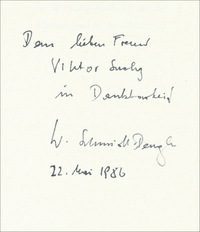 Dem lieben Freund
Viktor Suchy
in Dankbarkeit
W. Schmidt-Dengler
22. Mai 1986